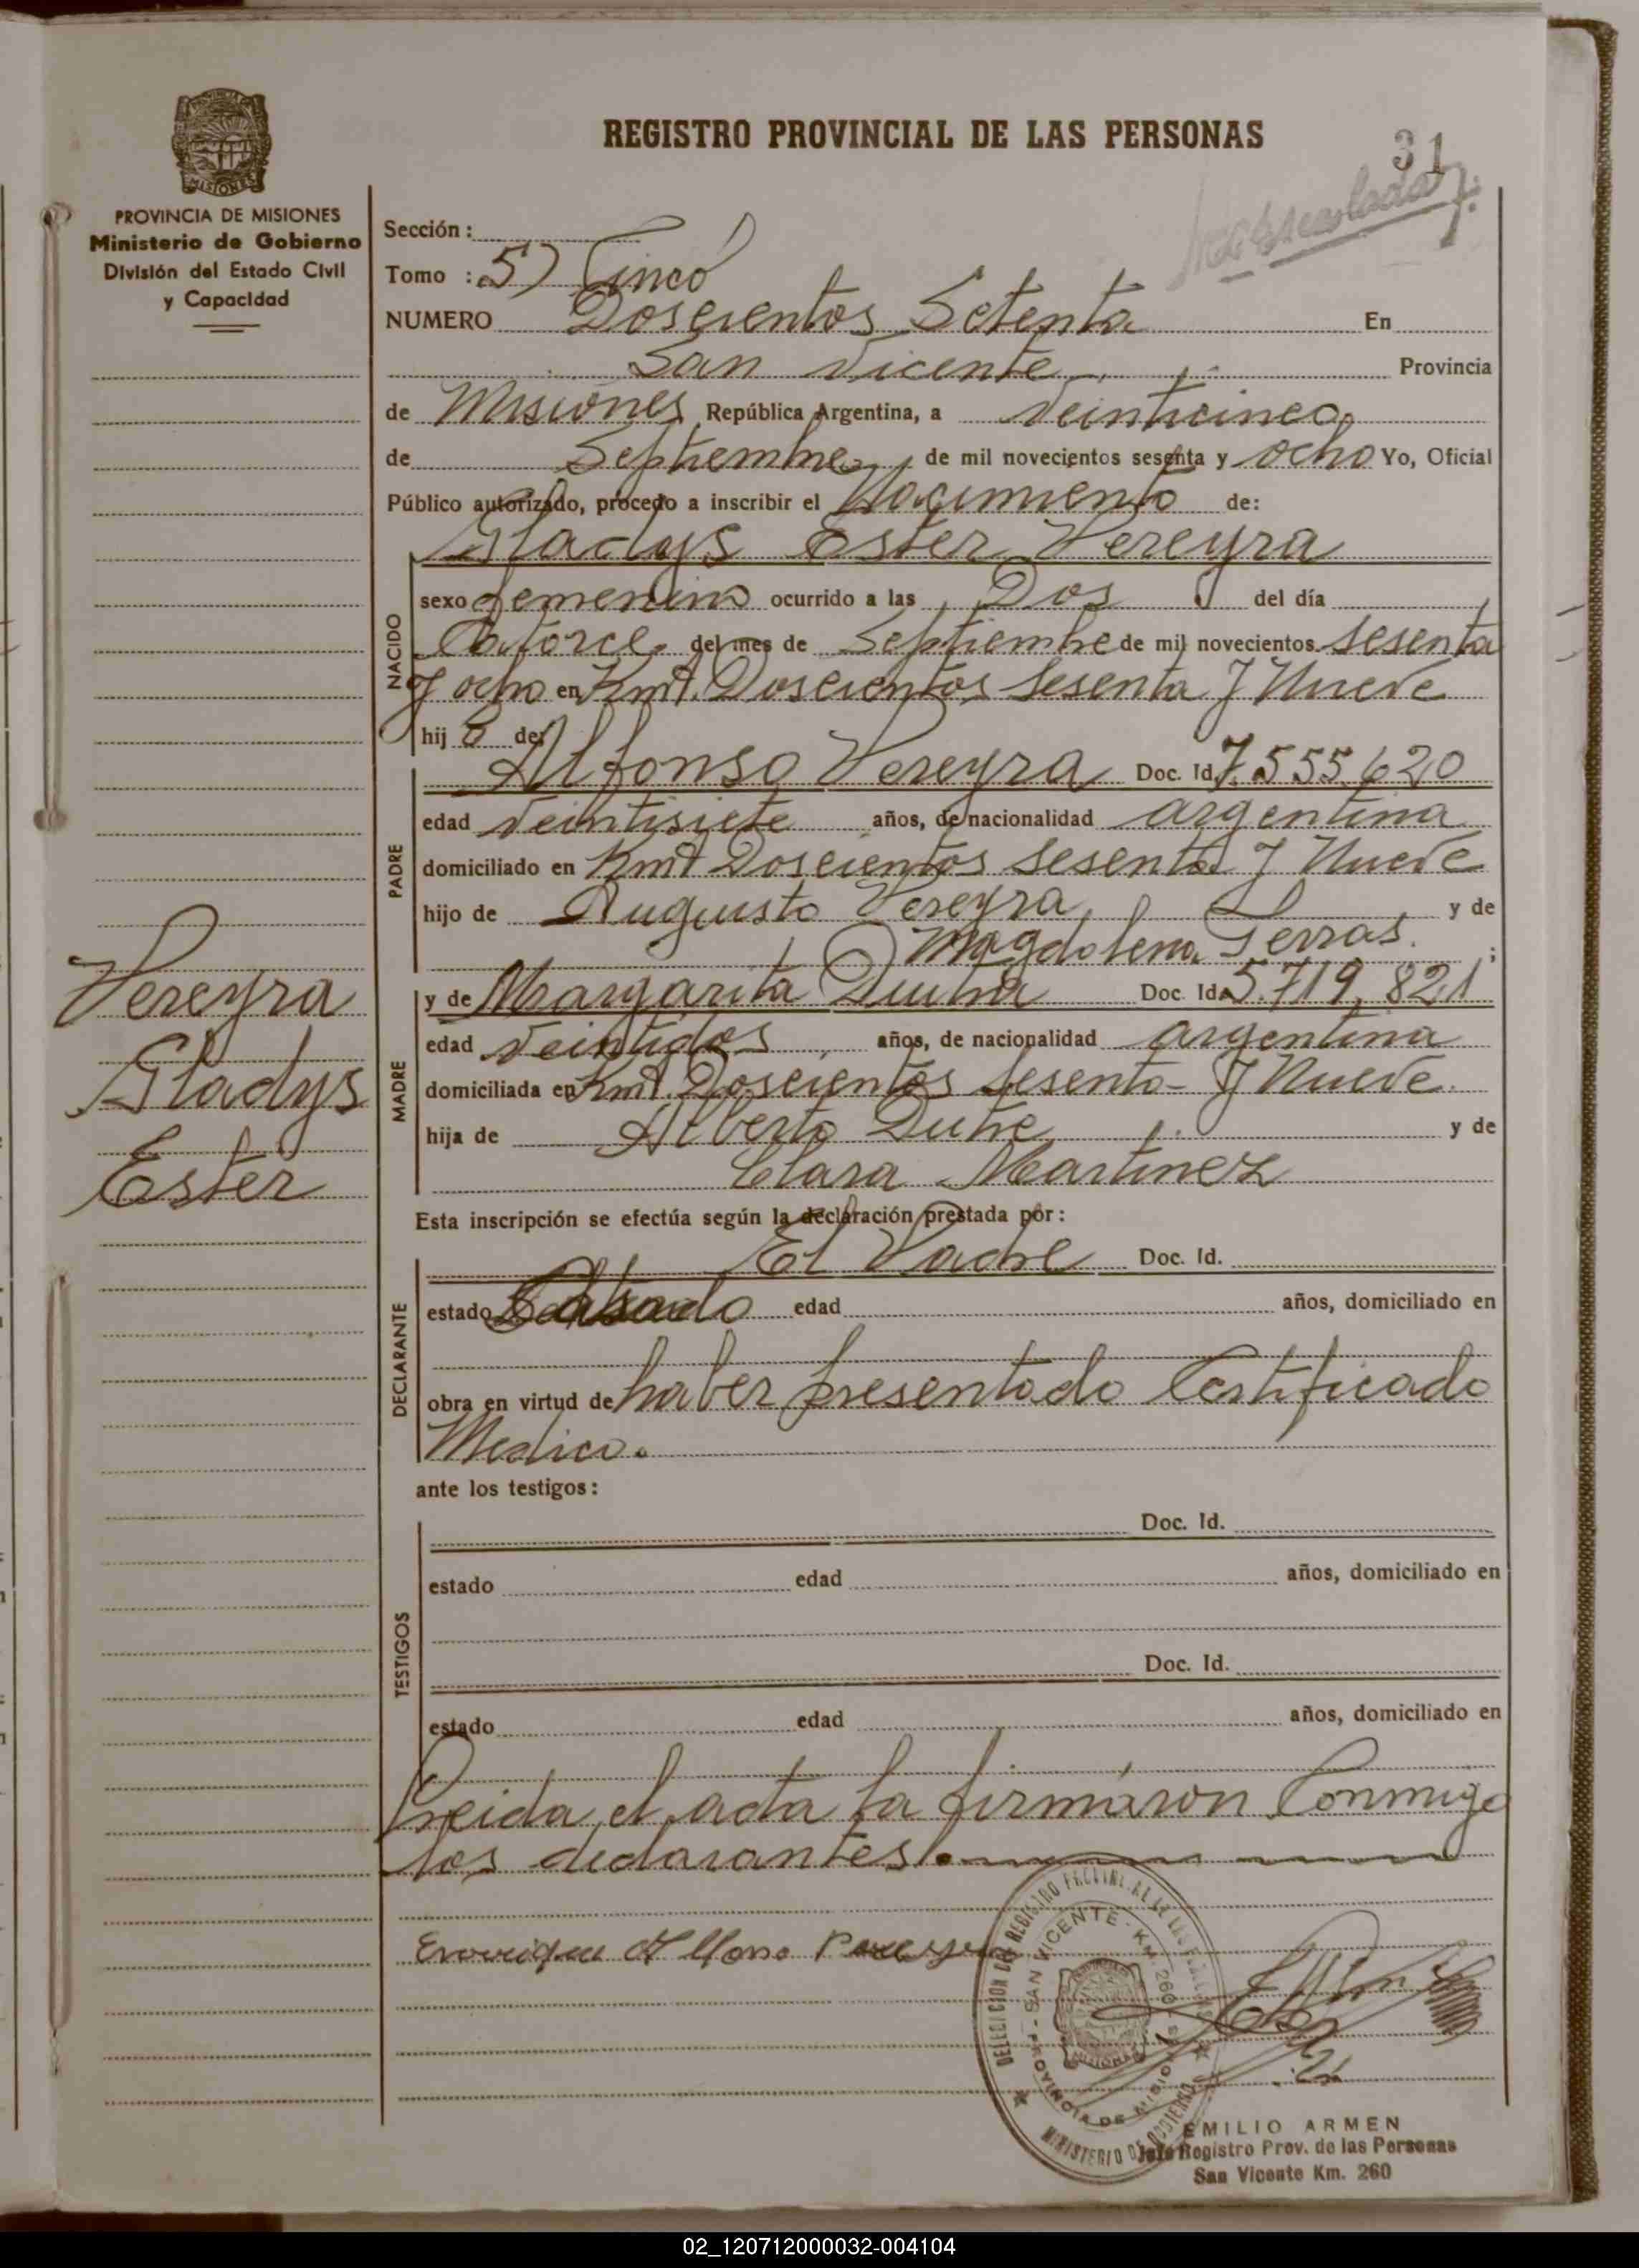 REGISTRO PROVINCIAL DE LAS PERSONAS
31
PROVINCIA DE MISIONES
Ministerio de Gobierno
División del Estado Civil
y Capacidad
Sección :
Tomo : 5) Cinco
NUMERO Doscientos Setenta En
San Vicente Provincia
de Misiones República Argentina, a Veinticinco
de Septiembre de mil novecientos sesenta y ocho Yo, Oficial
Público autorizado, procedo a inscribir el Nacimiento de:
Gladys Ester Pereyra
NACIDO
sexo femenino ocurrido a las Dos del día
Catorce del mes de Septiembre de mil novecientos sesenta
y ocho en Kmt. Doscientos Sesenta y Nueve
hij a de:
Alfonso Pereyra Doc. Id. 7.555.620
PADRE
edad Veintisiete años, de nacionalidad argentina
domiciliado en Kmt Doscientos Sesenta y Nueve
hijo de Augusto Pereyra y de
Magdalena ;
MADRE
y de Margarita Doc. Id. 5.719.821
edad Veintidos años, de nacionalidad argentina
domiciliada en Kmt. Doscientos Sesenta y Nueve
hija de Alberto y de
Clara Martinez
Pereyra
Gladys
Ester
Esta inscripción se efectúa según la declaración prestada por :
DECLARANTE
El Padre Doc. Id.
estado Casado edad años, domiciliado en
obra en virtud de haber presentado Certificado
Medico.
ante los testigos :
TESTIGOS
Doc. Id.
estado edad años, domiciliado en
Doc. Id.
estado edad años, domiciliado en
Leida el acta la firmáron Conmigo
los declarantes.
Enrrique Alfonso Pereyra
DELEGACION DEL REGISTRO PROVINCIAL DE LAS PERSONAS
SAN VICENTE - KM. 260
PROVINCIA DE MISIONES
MINISTERIO DE GOBIERNO
MISIONES
EMILIO ARMEN
Jefe Registro Prov. de las Personas
San Vicente Km. 260
02_120712000032-004104